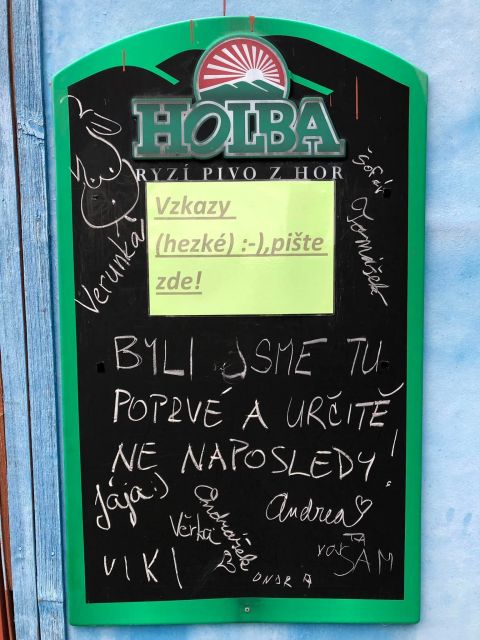 HOLBA
RYZÍ PIVO Z HOR
Vzkazy
(hezké) :-),pište
zde!
Verunka
Tomášek
BYLI JSME TU
POPRVÉ A URČITĚ
NE NAPOSLEDY!
Jája:)
Věrka
Ondrášek
Andrea
VIKI
SAM